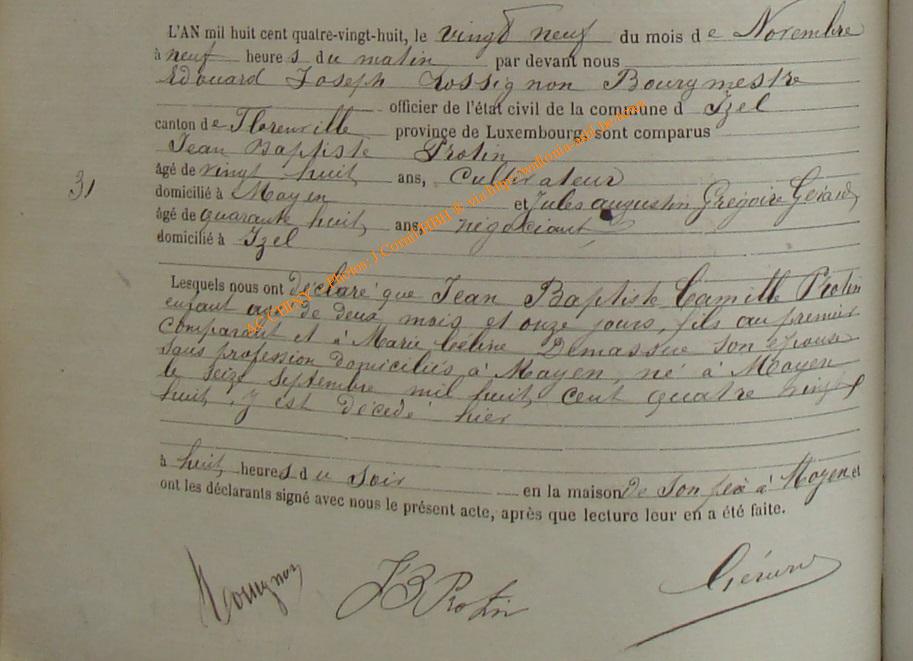 L'AN mil huit cent quatre-vingt-huit, le vingt neuf du mois de Novembre
à neuf heures du matin par devant nous
Edouard Joseph Rossignon Bourgmestre
officier de l'état civil de la commune d Izel
canton de Florenville province de Luxembourg, sont comparus
Jean Baptiste Protin
âgé de vingt huit ans, Cultivateur
31
domicilié à Moyen et Jules Augustin Grégoire Gérard,
âgé de quarante huit ans, négociant
domicilié à Izel
Lesquels nous ont déclaré que Jean Baptiste Camille Protin
enfant agé de deux mois et onze jours, fils au premier
comparant et à Marie Céline Demassue son épouse
sans profession domiciliés à Moyen, né à Moyen
le seize Septembre mil huit cent quatre vingt
huit, y est décédé hier
à huit heures du soir en la maison de son père à Moyen et
ont les déclarants signé avec nous le présent acte, après que lecture leur en a été faite.
Rossignon JB Protin Gérard
AC CHINY - Photos: J Cornet